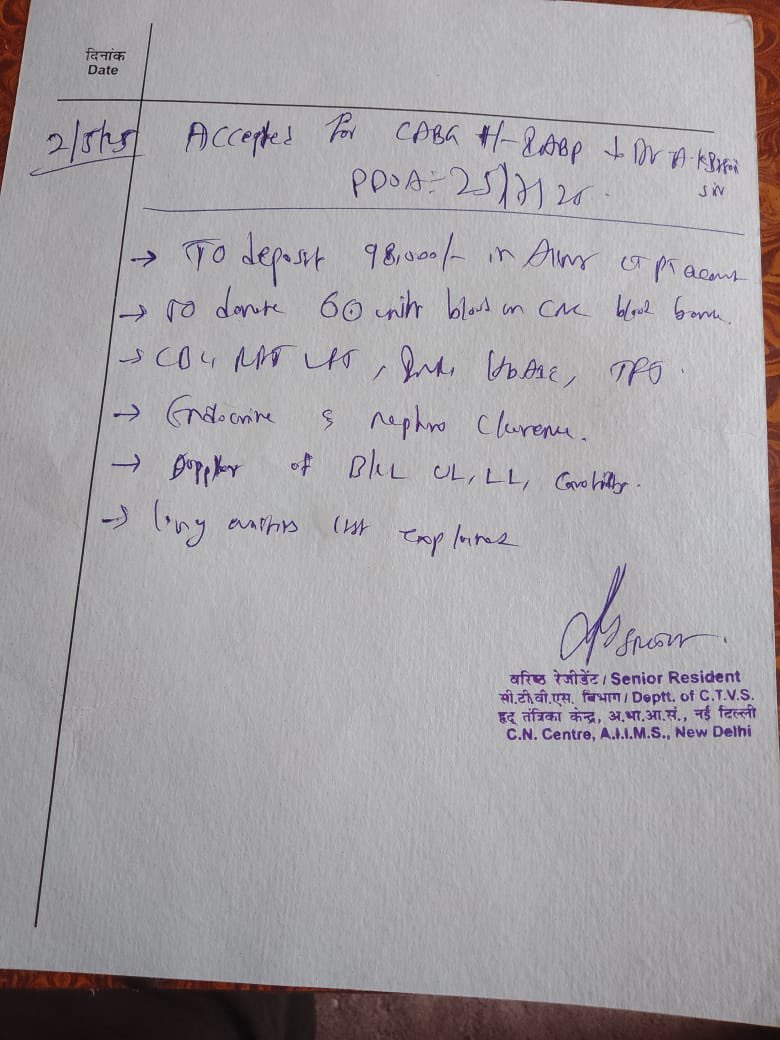 दिनांक
Date
2/5/25 Accepted for CABG +/- IABP Dr A.K
sir
PDOA:- 25/7/26.
→ To deposit 98,000/- in AIIMS pt account
→ To donate 60 units blood in CNC blood bank.
→ CBC, RFT LFT, HbA1c,
→ Endocrine & nephro clearance.
→ Doppler of B/L UL, LL, Carotids.
→ long waiting list explained
वरिष्ठ रेजीडेंट / Senior Resident
सी.टी.वी.एस. विभाग / Deptt. of C.T.V.S.
हृद् तंत्रिका केन्द्र, अ.भा.आ.सं., नई दिल्ली
C.N. Centre, A.I.I.M.S., New Delhi